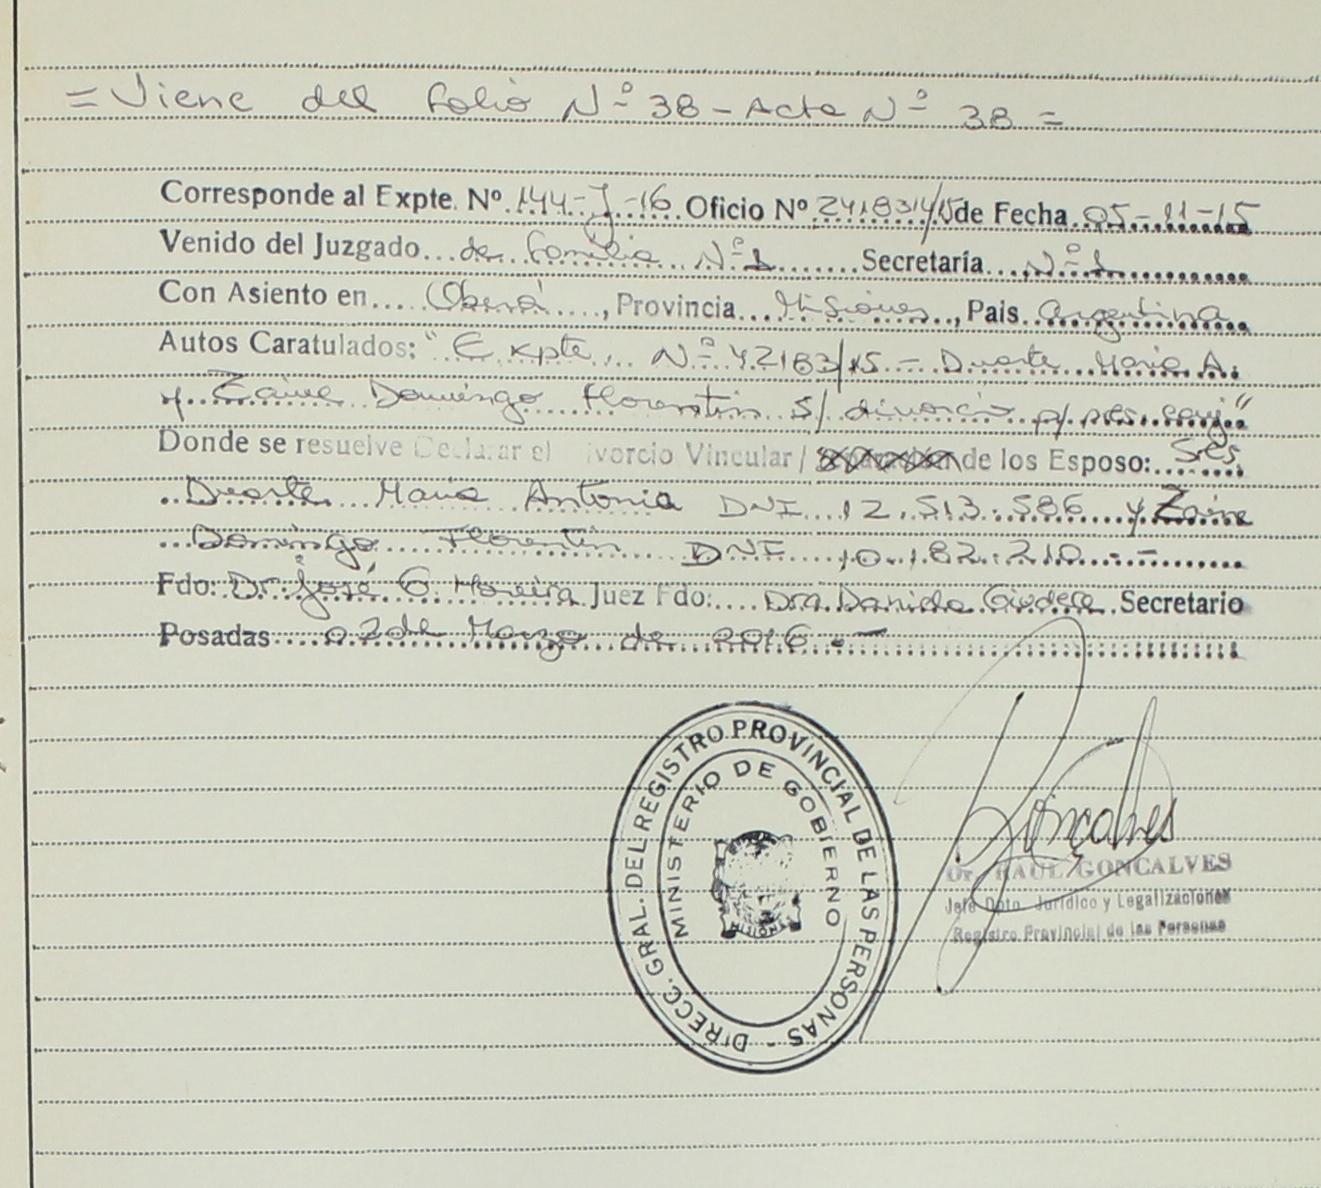 = Viene del folio Nº 38 - Acta Nº 38 =
Corresponde al Expte. Nº 144-J-16 Oficio Nº 24183/15 de Fecha 05-11-15
Venido del Juzgado de familia Nº 1 Secretaría Nº 1
Con Asiento en Oberá, Provincia Misiones, Pais Argentina
Autos Caratulados: "Expte. Nº 42183/15 - Duarte Maria A.
y Zaine Domingo Florentin S/ divorcio p/ pres. conj"
Donde se resuelve Declarar el ivorcio Vincular / de los Esposo: Sres
Duarte Maria Antonia DNI 12.513.586 y Zaine
Domingo Florentin DNI 10.182.210.-
Fdo: Dr. José G. Moreira Juez Fdo: Dra. Daniela Secretario
Posadas 02 de Marzo de 2016.-
DIRECC. GRAL. DEL REGISTRO PROVINCIAL DE LAS PERSONAS -
MINISTERIO DE GOBIERNO
MISIONES
Gonçalves
Dr. RAUL GONCALVES
Jefe Dpto. Jurídico y Legalizaciones
Registro Provincial de las Personas